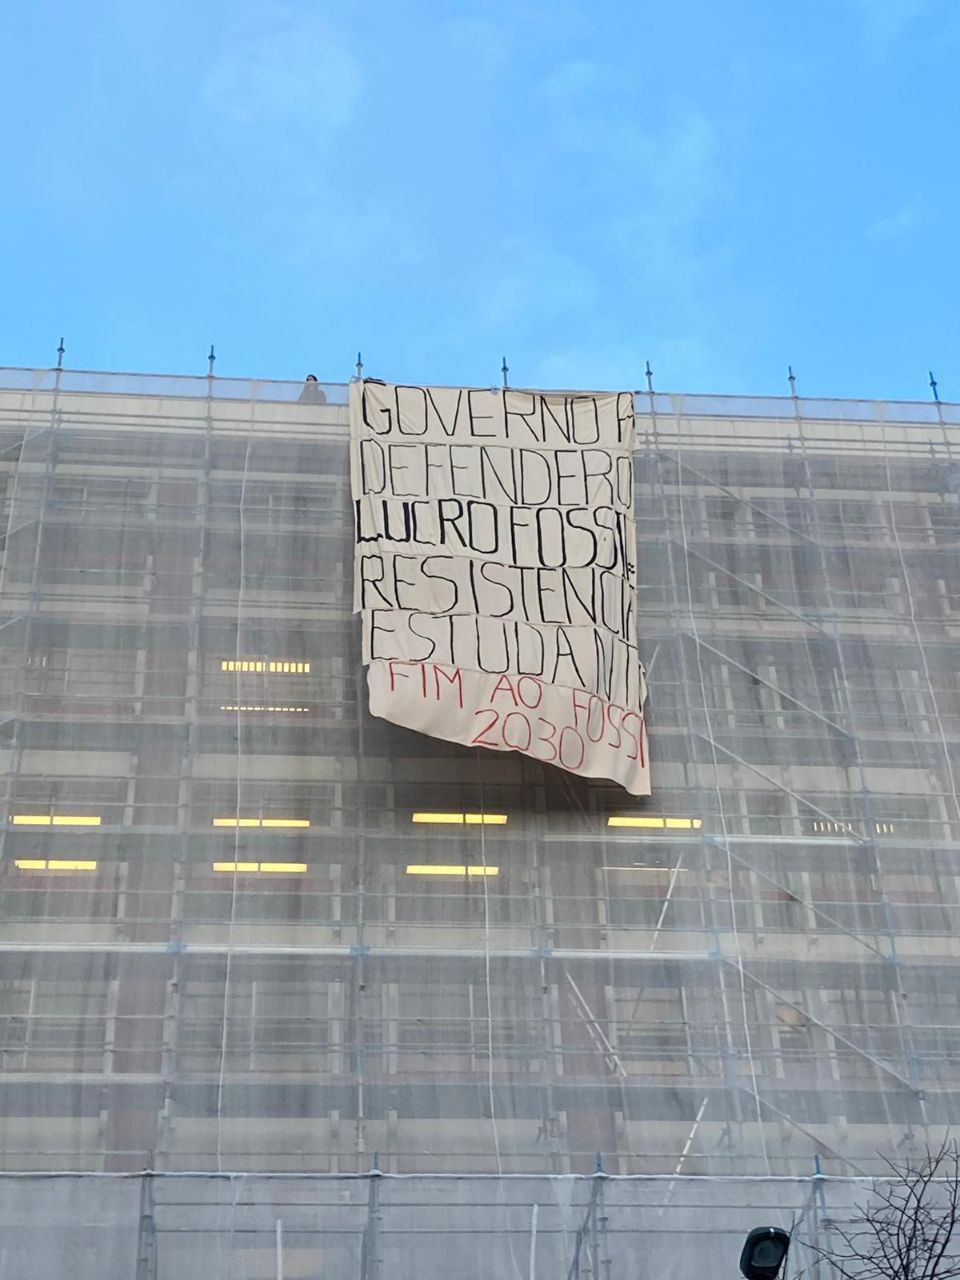 GOVERNO A
DEFENDER O
LUCRO FOSSIL =
RESISTENCIA
ESTUDANTIL
FIM AO FOSSIL
2030